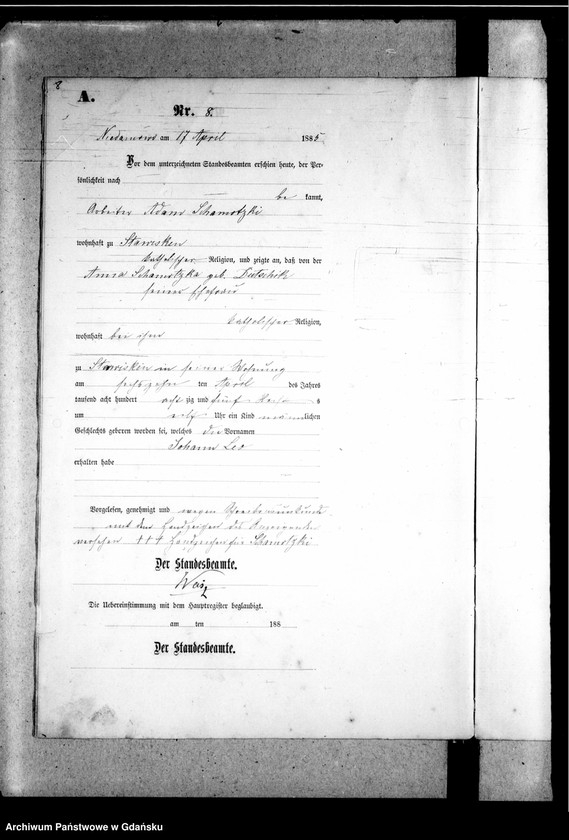 8
A.
Nr. 8.
Niedamowo am 17 April 1885
Vor dem unterzeichneten Standesbeamten erschien heute, der Per-
sönlichkeit nach
be kannt,
Arbeiter Adam Schamotzki
wohnhaft zu Stawisken
katholischer Religion, und zeigte an, daß von der
Anna Schamotzka geb.
seiner Ehefrau
katholischer Religion,
wohnhaft bei ihm
zu Stawisken in seiner Wohnung
am sechszehn ten April des Jahres
tausend acht hundert acht zig und fünf s
um elf Uhr ein Kind männlichen
Geschlechts geboren worden sei, welches die Vornamen
Johann Leo
erhalten habe
Vorgelesen, genehmigt und wegen Schreibensunkunde
mit dem Handzeichen des
versehen +++ Handzeichen für Schamotzki
Der Standesbeamte.
Die Uebereinstimmung mit dem Hauptregister beglaubigt.
am ten 188
Der Standesbeamte.
Archiwum Państwowe w Gdańsku